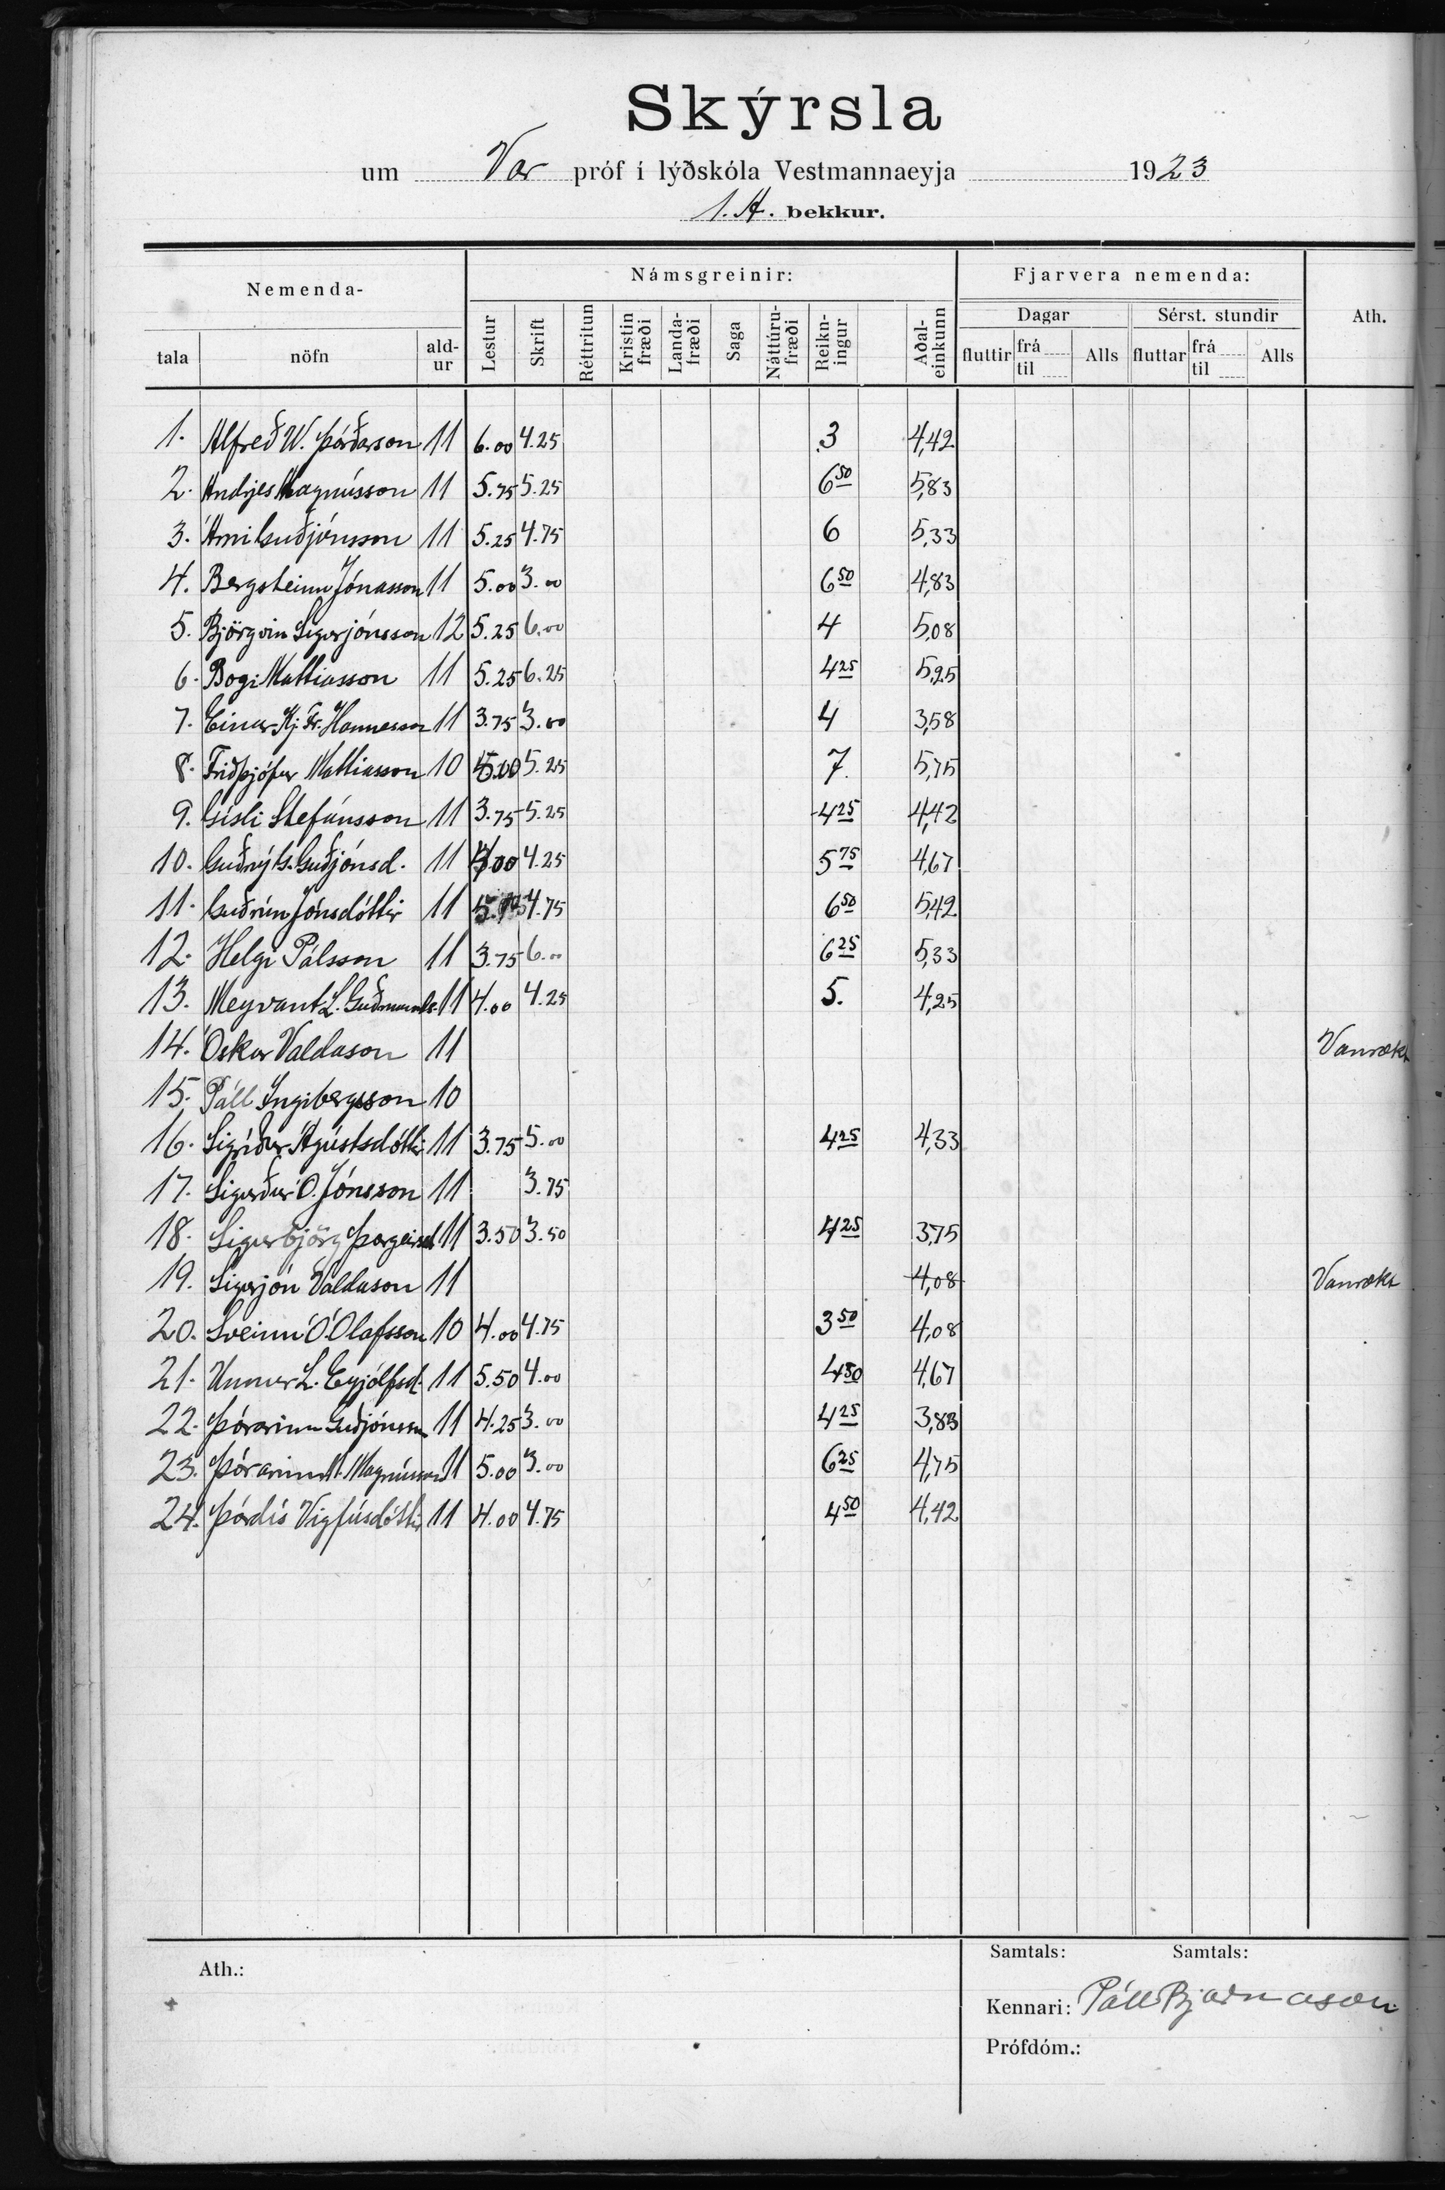 Skýrsla
um Vor próf í lýðskóla Vestmannaeyja 1923
1. A. bekkur.
Nemenda- Námsgreinir: Fjarvera nemenda: Ath.
Dagar Sérst. stundir
tala nöfn ald-ur Lestur Skrift Réttritun Kristin fræði Landa-fræði Saga Náttúru-fræði Reikn-ingur Aðal-einkunn fluttir frá til Alls fluttar frá til Alls
1. Alfreð W. Þórðarson 11 6.00 4.25 3 4,42
2. Andrjes Magnússon 11 5.75 5.25 6 50 5,83
3. Árni Guðjónsson 11 5.25 4.75 6 5,33
4. Bergsteinn Jónasson 11 5.00 3.00 6 50 4,83
5. Björgvin Sigurjónsson 12 5.25 6.00 4 5,08
6. Bogi Mattiasson 11 5.25 6.25 4 25 5,25
7. Einar Kj. Fr. Hannesson 11 3.75 3.00 4 3,58
8. Friðþjófur Mattiasson 10 5.00 5.25 7. 5,75
9. Gísli Stefánsson 11 3.75 5.25 4 25 4,42
10. Guðný G. Guðjónsd. 11 4.00 4.25 5 75 4,67
11. Guðrún Jónsdóttir 11 4.75 6 50 5,42
12. Helgi Pálsson 11 3.75 6.00 6 25 5,33
13. Meyvant L. Guðmunds. 11 4.00 4.25 5. 4,25
14. Óskar Valdason 11 Vanrækt
15. Páll Ingibergsson 10
16. Sigríður Ágústsdóttir 11 3.75 5.00 4 25 4,33
17. Sigurður O. Jónsson 11 3.75
18. Sigurbjörg Þorgeirsd 11 3.50 3.50 4 25 3,75
19. Sigurjón Valdason 11 4,08 Vanrækt
20. Sveinn Ó. Ólafsson 10 4.00 4.75 3 50 4,08
21. Unnur L. Eyjólfsd. 11 5.50 4.00 4 50 4,67
22. Þórarinn Guðjónsson 11 4.25 3.00 4 25 3,83
23. Þórarinn Magnússon 11 5.00 3.00 6 25 4,75
24. Þórdís Vigfúsdóttir 11 4.00 4.75 4 50 4,42
Ath.:
Samtals: Samtals:
Kennari: Páll Bjarnason
Prófdóm.: